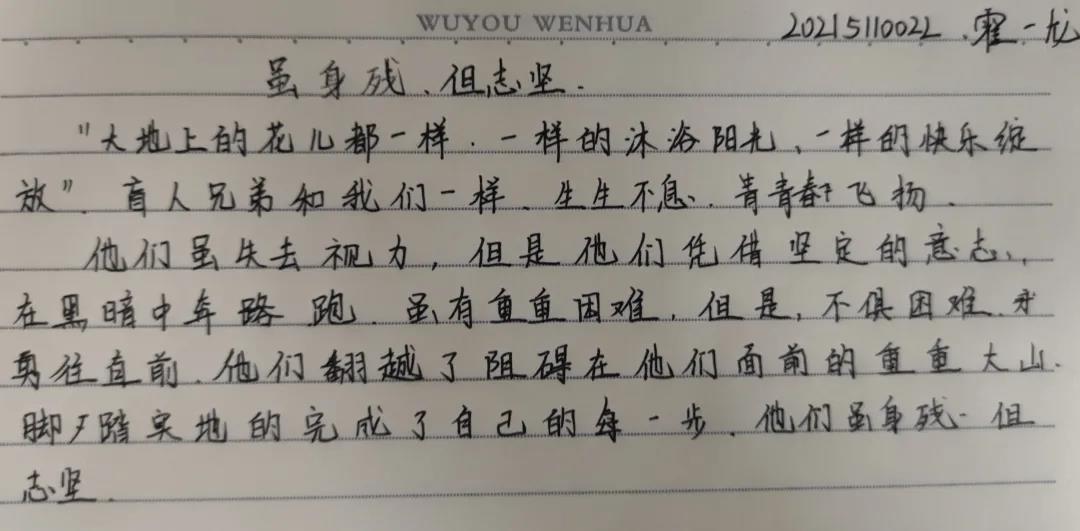 WUYOU WENHUA
20215110022 霍一龙
虽身残、但志坚.
"大地上的花儿都一样.一样的沐浴阳光、一样的快乐绽
放".盲人兄弟和我们一样、生生不息、青春飞扬.
他们虽失去视力,但是他们凭借坚定的意志,
在黑暗中奔跑.虽有重重困难,但是,不惧困难.
勇往直前.他们翻越了阻碍在他们面前的重重大山.
脚踏实地的完成了自己的每一步.他们虽身残.但
志坚.